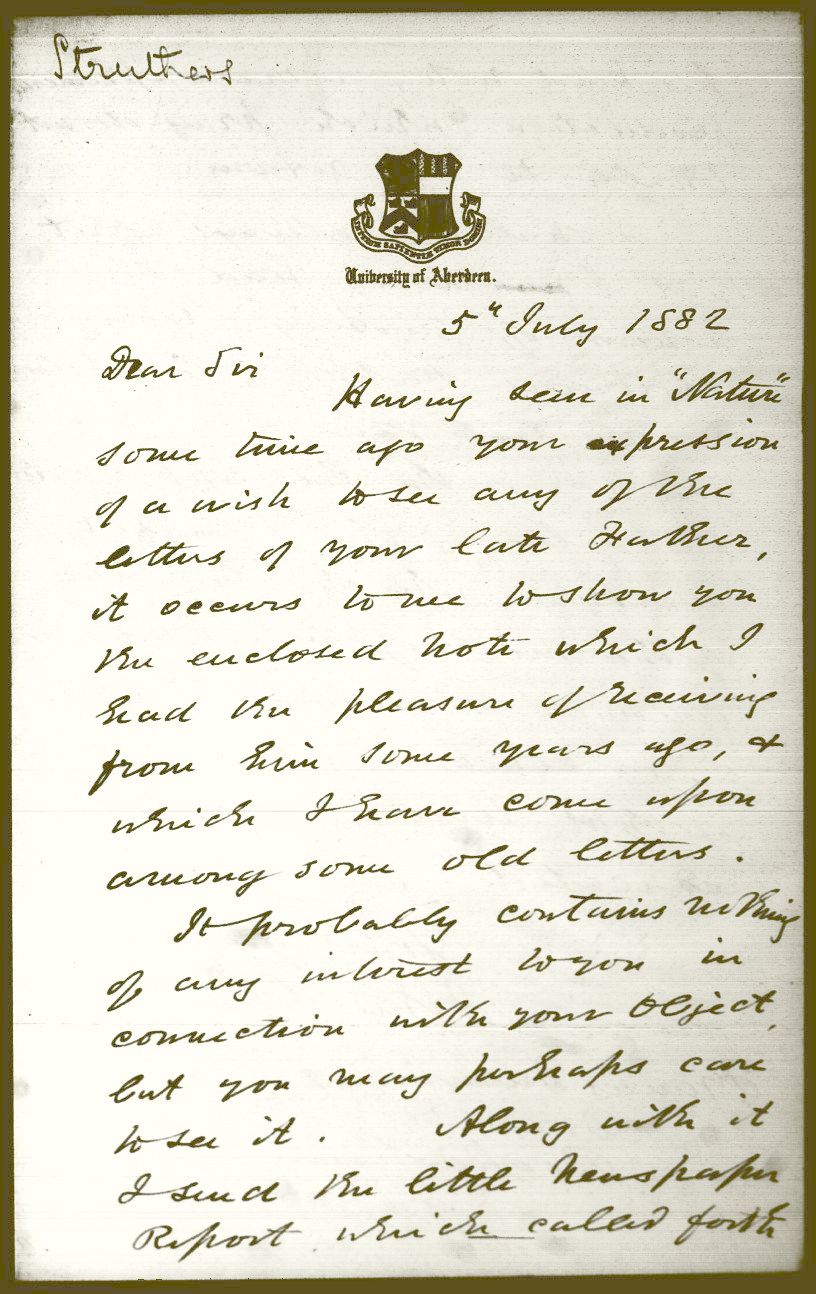 Struthers
INITIUM SAPIENTIÆ TIMOR DOMINI
University of Aberdeen.
5th July 1882
Dear Sir
Having seen in "Nature"
some time ago your expression
of a wish to see any of the
letters of your late Father,
it occurs to me to show you
the enclosed note which I
had the pleasure of receiving
from him some years ago, &
which I have come upon
among some old letters.
It probably contains nothing
of any interest to you in
connection with your object,
but you may perhaps care
to see it. Along with it
I send the little Newspaper
Report which called forth